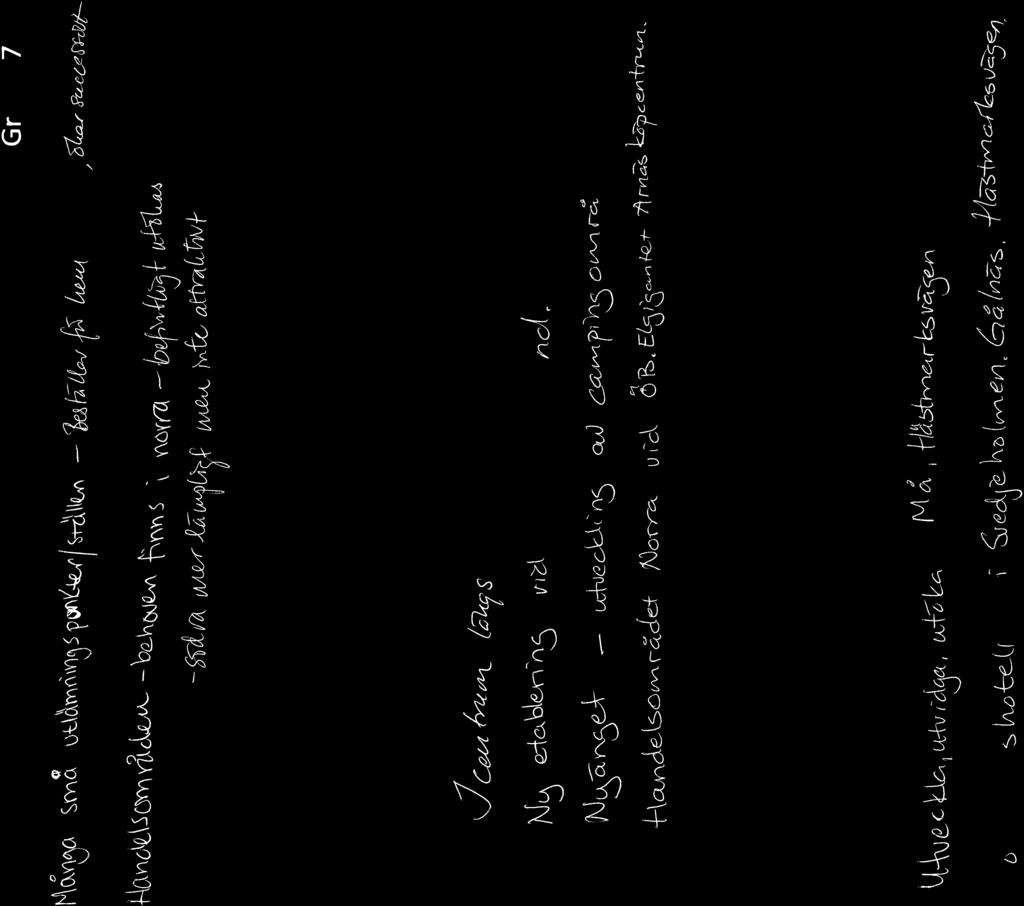 Gr 7
Många små utlämningspunkter/ställen - Beställer för hem , ökar successivt
Handelsområden - behoven finns i norra - befintligt utökas
- södra mer lämpligt men inte attraktivt
I centrum längs
Ny etablering vid nd.
Nyänget - utveckling av campingområ
Handelsområdet Norra vid ÖB. Elgiganten Arnäs köpcentrum.
Utveckla, utvidga, utöka Må, Hästmarksvägen
o shotell i Svedjeholmen. Gålnäs. Hästmarksvägen.